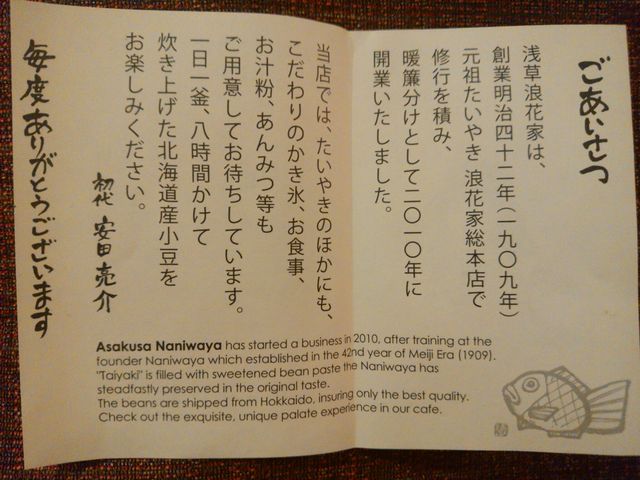 ごあいさつ
浅草浪花家は、
創業明治四十二年（一九〇九年）
元祖たいやき 浪花家総本店で
修行を積み、
暖簾分けとして二〇一〇年に
開業いたしました。
当店では、たいやきのほかにも、
こだわりのかき氷、お食事、
お汁粉、あんみつ等も
ご用意してお待ちしています。
一日一釜、八時間かけて
炊き上げた北海道産小豆を
お楽しみください。
初代 安田亮介
毎度ありがとうございます
Asakusa Naniwaya has started a business in 2010, after training at the
founder Naniwaya which established in the 42nd year of Meiji Era (1909).
"Taiyaki" is filled with sweetened bean paste the Naniwaya has
steadfastly preserved in the original taste.
The beans are shipped from Hokkaido, insuring only the best quality.
Check out the exquisite, unique palate experience in our cafe.